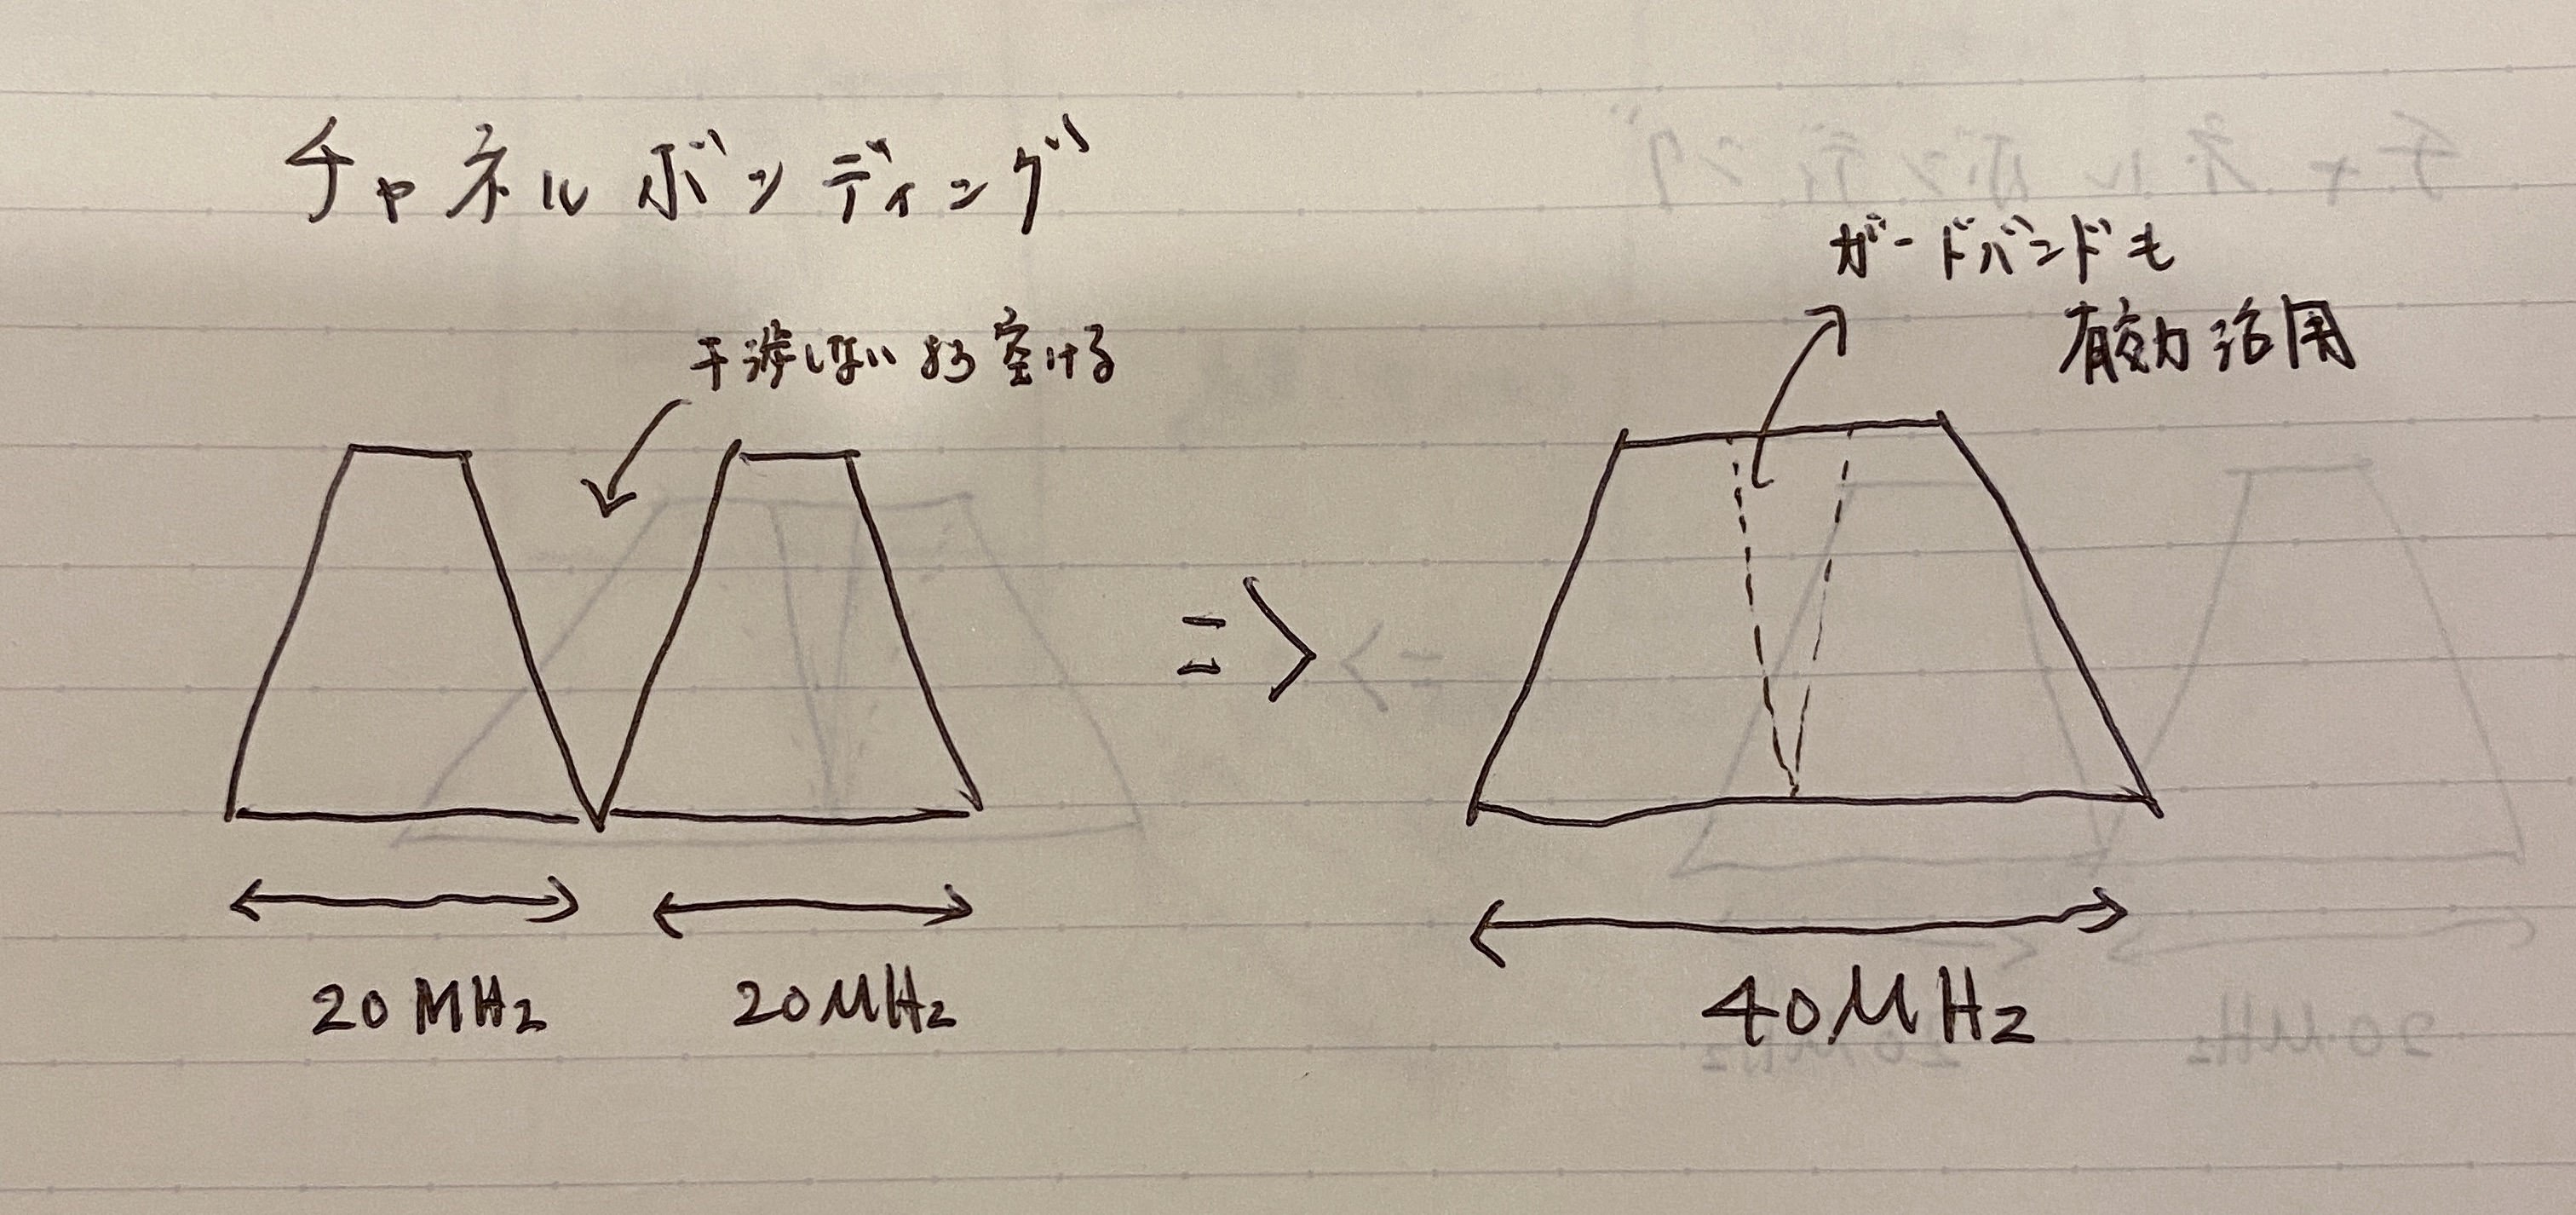 チャネルボンディング
干渉しないよう空ける
ガードバンドも
有効活用
=>
20MHz
20MHz
40MHz